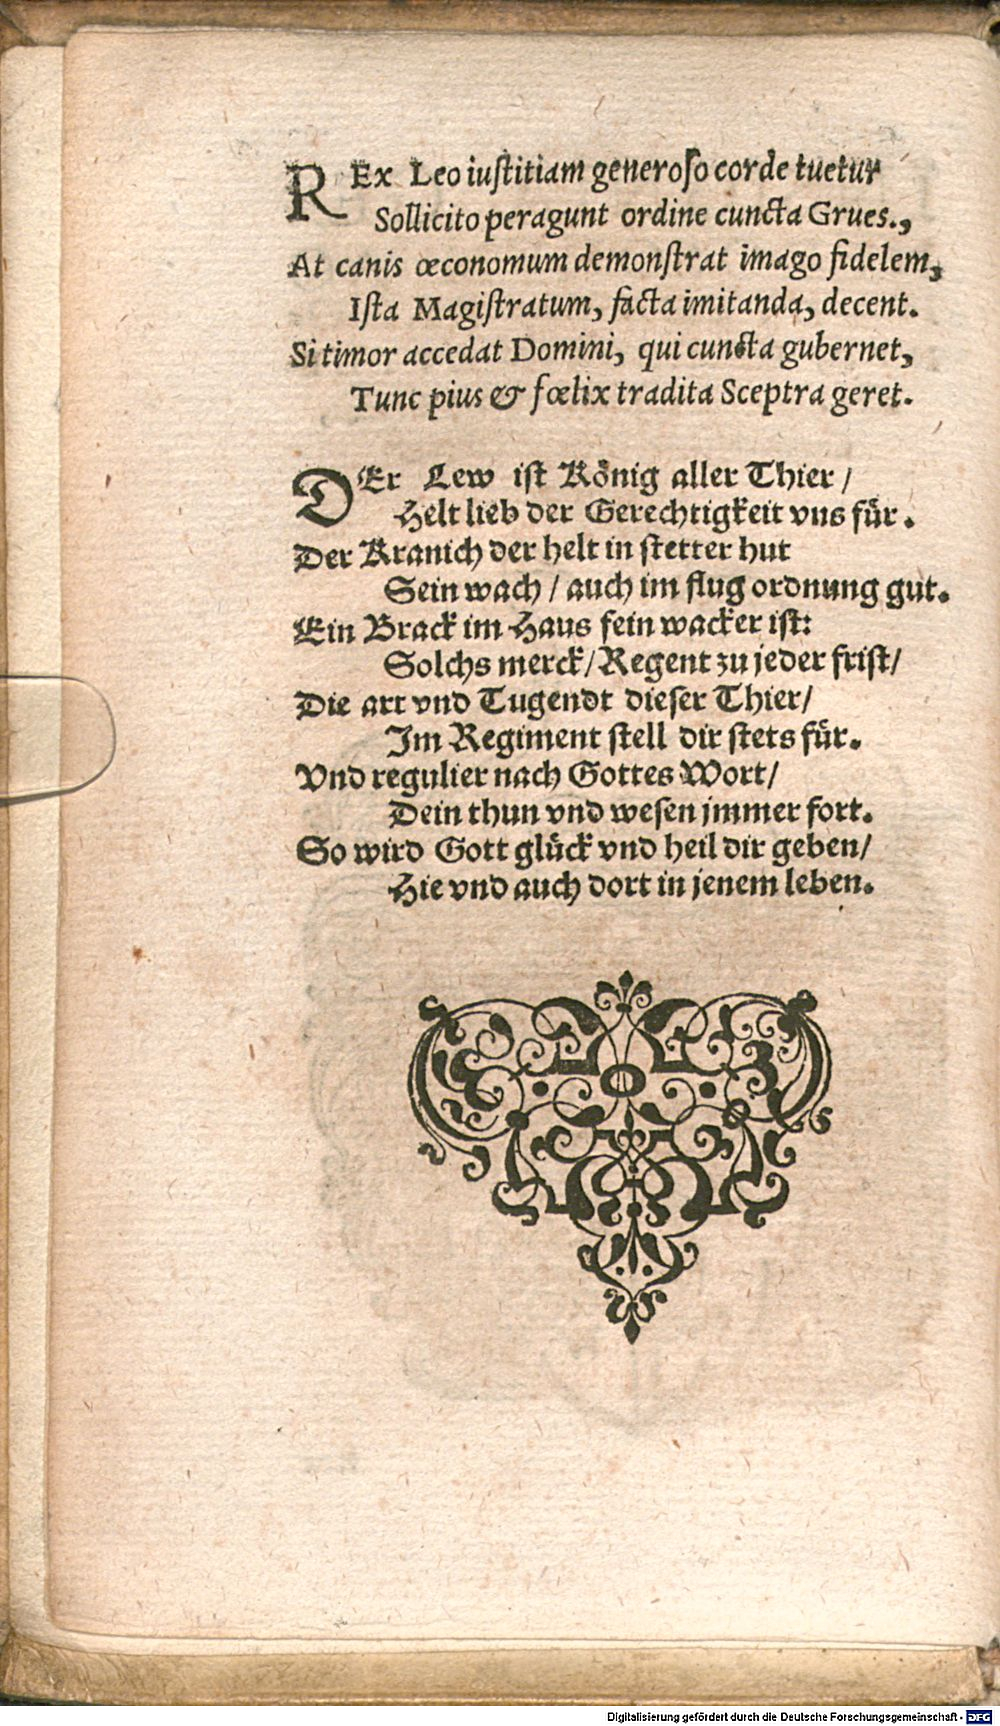 REx Leo iuſtitiam generoſo corde tuetur
Sollicito peragunt ordine cuncta Grues.,
At canis œconomum demonſtrat imago fidelem,
Iſta Magiſtratum, facta imitanda, decent.
Si timor accedat Domini, qui cuncta gubernet,
Tunc pius & fœlix tradita Sceptra geret.
DEr Lew iſt König aller Thier /
Helt lieb der Gerechtigkeit vns für.
Der Kranich der helt in ſtetter hut
Sein wach / auch im flug ordnung gut.
Ein Brack im Haus fein wacker iſt:
Solchs merck / Regent zu jeder friſt /
Die art vnd Tugendt dieſer Thier /
Im Regiment ſtell dir ſtets für.
Vnd regulier nach Gottes Wort /
Dein thun vnd weſen jmmer fort.
So wird Gott glück vnd heil dir geben /
Hie vnd auch dort in jenem leben.
Digitalisierung gefördert durch die Deutsche Forschungsgemeinschaft - DFG